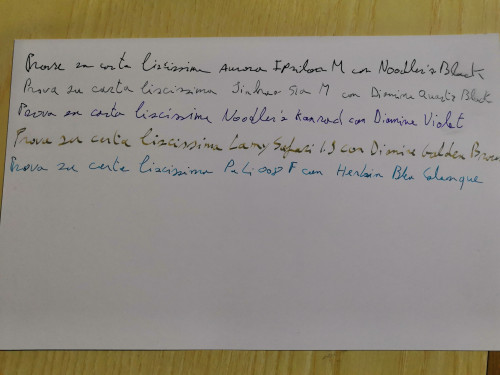 Prova su carta liscissima Aurora Ipsilon M con Noodler's Black
Prova su carta liscissima Jinhao M con Diamine Black
Prova su carta liscissima Noodler's Konrad con Diamine Violet
Prova su carta liscissima Lamy Safari 1.9 con Diamine Golden
Prova su carta liscissima F con Herbin Bleu Calanque